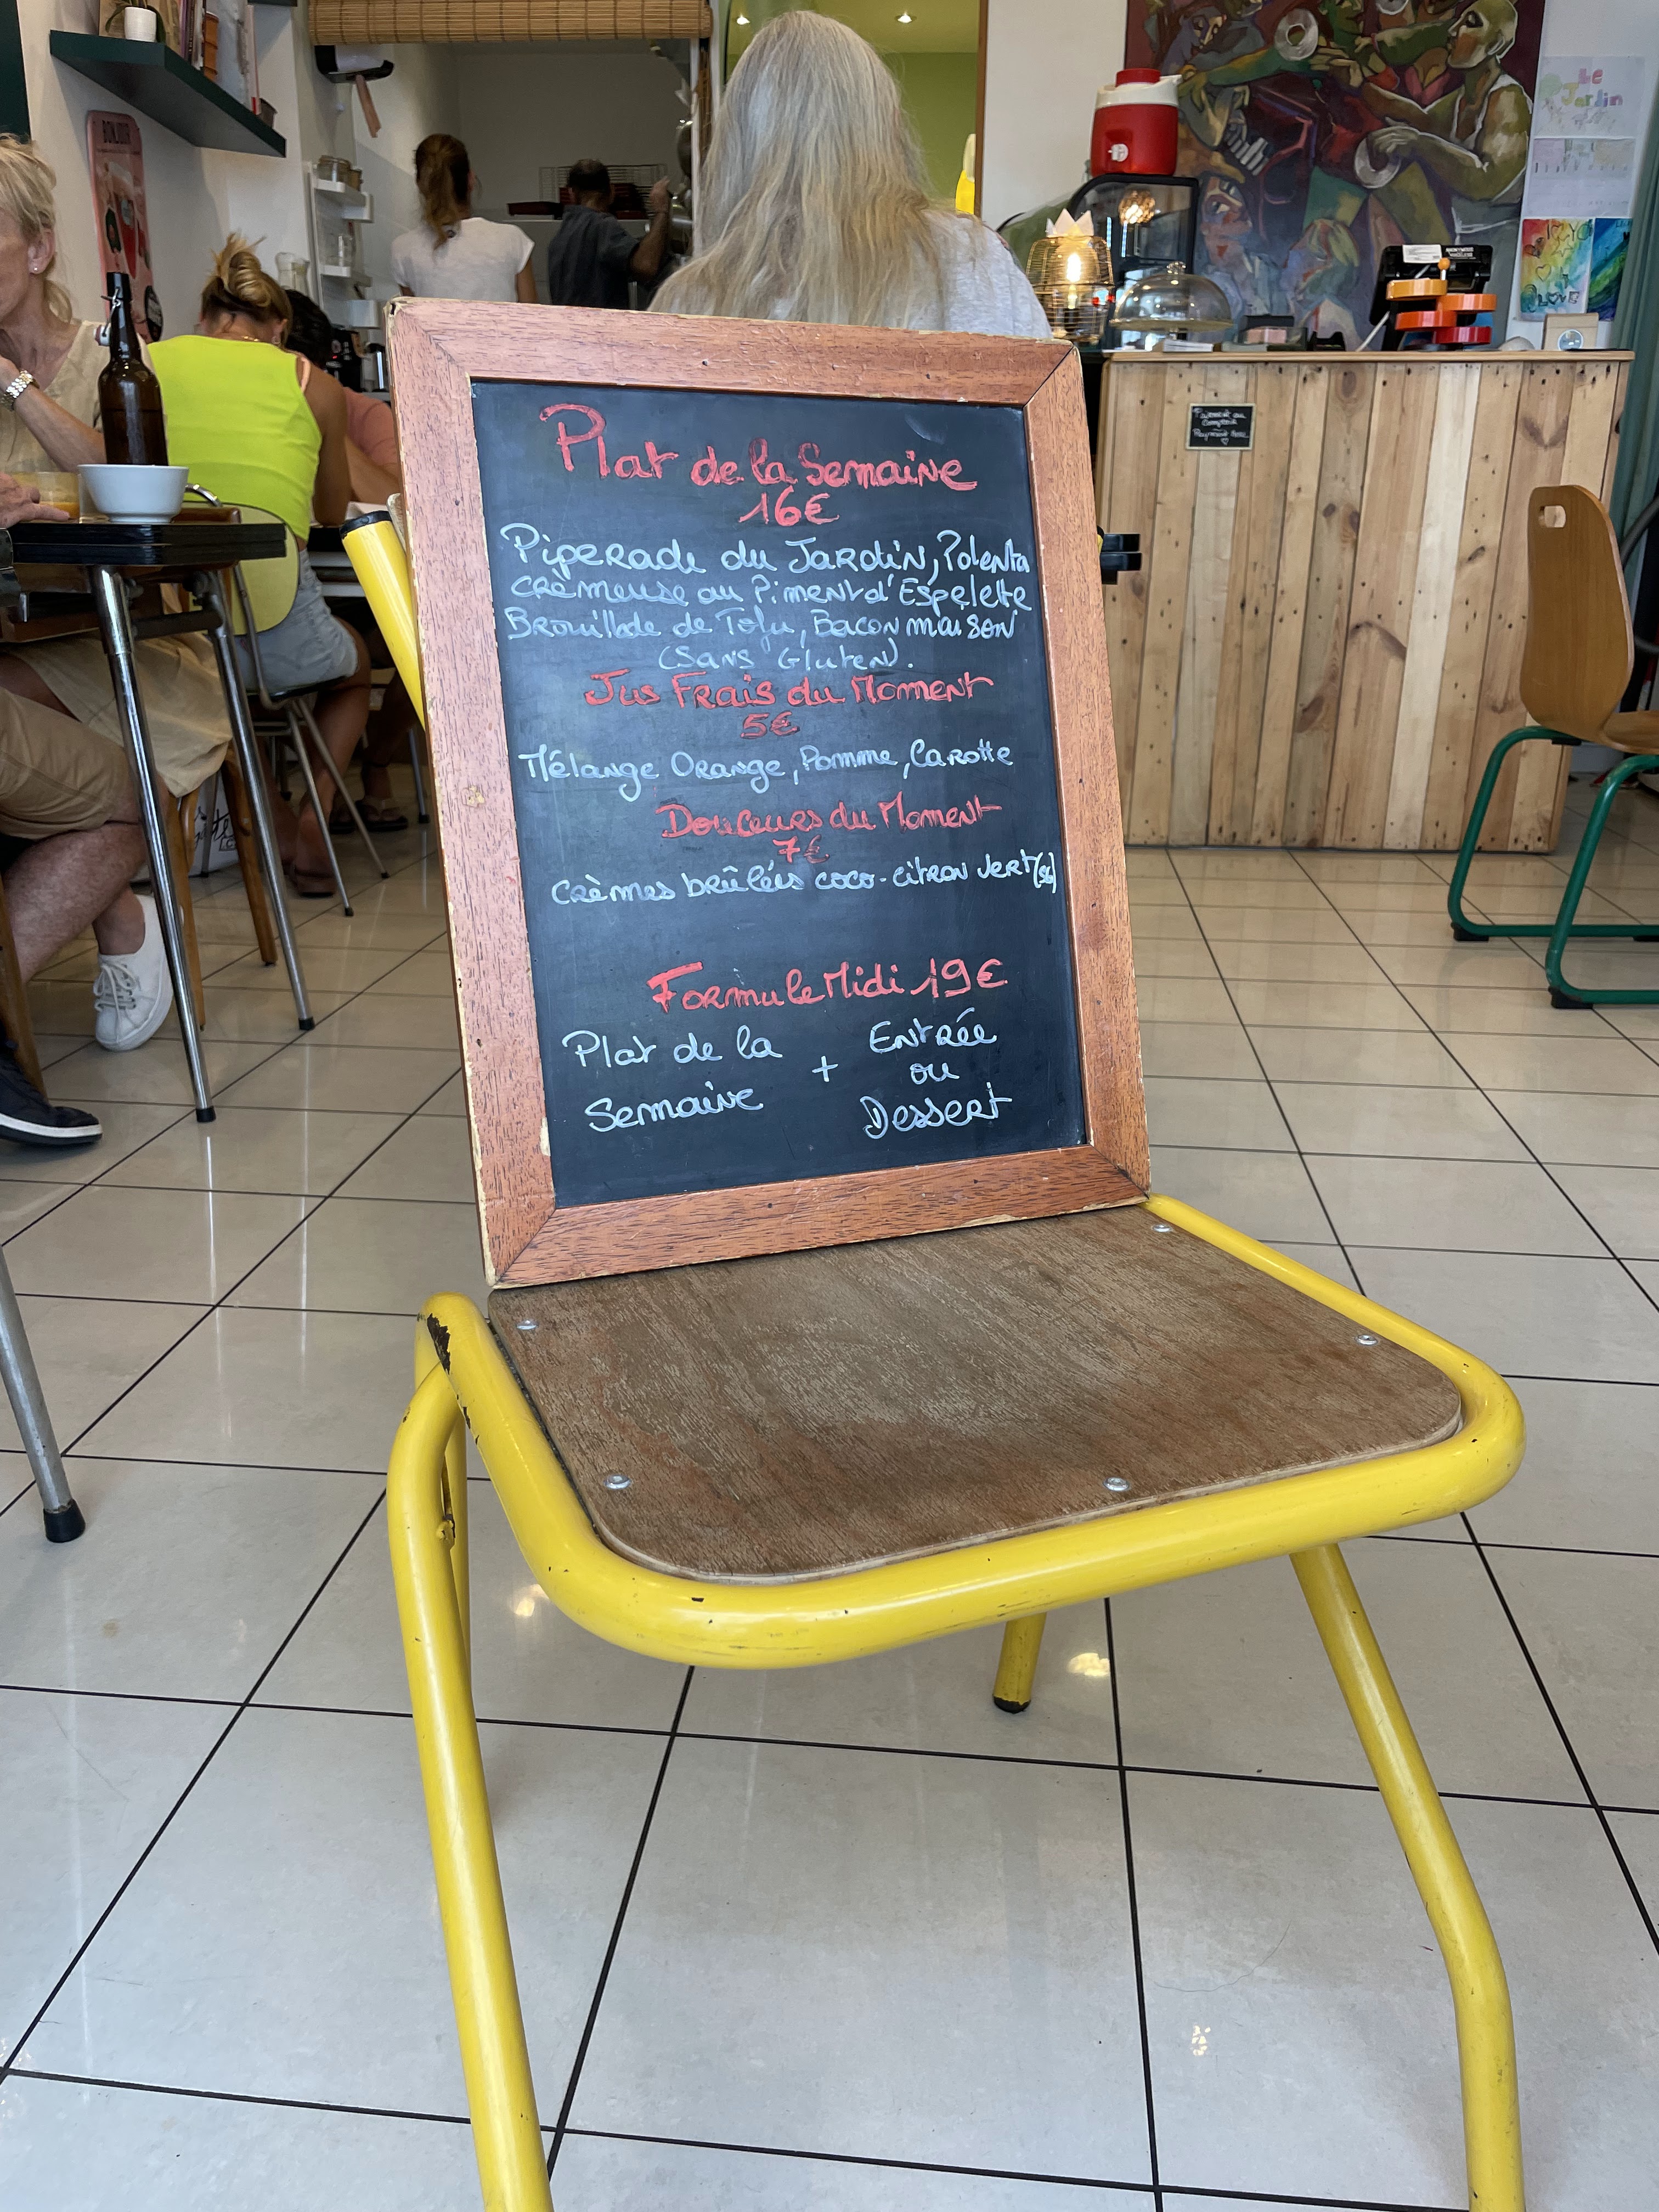 BONJOUR
Le
Jardin
LOVE
Paiement au
Comptoir
Payment here
Plat de la Semaine
16€
Piperade du Jardin, Polenta
crèmeuse au Piment d'Espelette
Brouillade de Tofu, Bacon maison
(Sans Gluten).
Jus Frais du Moment
5€
Mélange Orange, Pomme, Carotte
Douceurs du Moment
7€
crèmes brûlées coco-citron vert (SG)
Formule Midi 19€
Plat de la
Semaine
+
Entrée
ou
Dessert